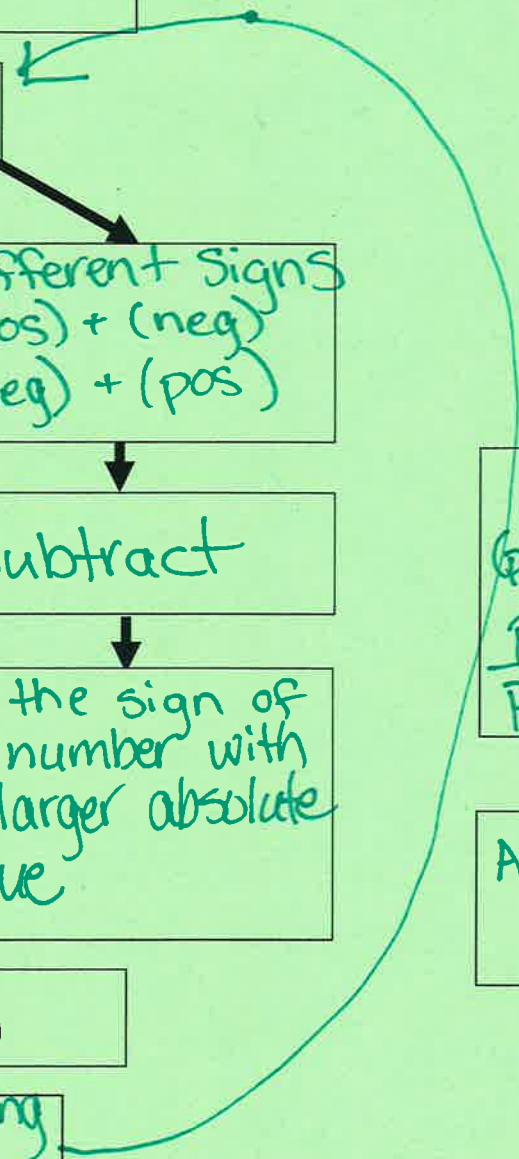 fferent Signs
os) + (neg)
eg) + (pos)
ubtract
the sign of
number with
larger absolute
ue
ng
A